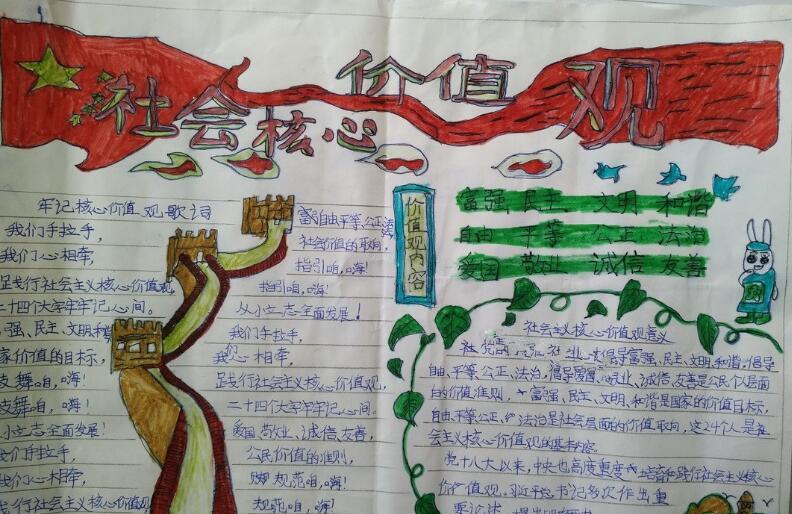 社会核心价值观
牢记核心价值观歌词
我们手拉手,
我们心相牵,
践行社会主义核心价值观,
二十四个大字牢牢记心间。
强、民主、文明和
家价值的目标,
鼓舞咱,嗨!
鼓舞咱,嗨!
小立志全面发展!
我们手拉手,
我们心相牵,
践行社会主义核心价值观
富强自由平等、公正法
社会价值的取向,
指引咱,嗨!
指引咱,嗨!
从小立志全面发展!
我们手拉手,
我们心相牵,
践行社会主义核心价值观,
二十四个大字牢牢记心间。
爱国、敬业、诚信、友善,
公民价值的准则,
规范咱,嗨!
规范咱,嗨!
价值观内容
富强 民主 文明 和谐
自由 平等 公正 法治
爱国 敬业 诚信 友善
社会主义核心价值观意义
倡导富强、民主、文明、和谐,倡导
自由、平等、公正、法治,倡导爱国、敬业、诚信、友善是公民个人层面
的价值准则,富强、民主、文明、和谐是国家的价值目标,
自由、平等、公正、法治是社会层面的价值取向,这24个人是社
会主义核心价值观的基本内容
党十八大以来,中央也高度重度培育和践行社会主义核心
价值观。习近平总书记多次作出重